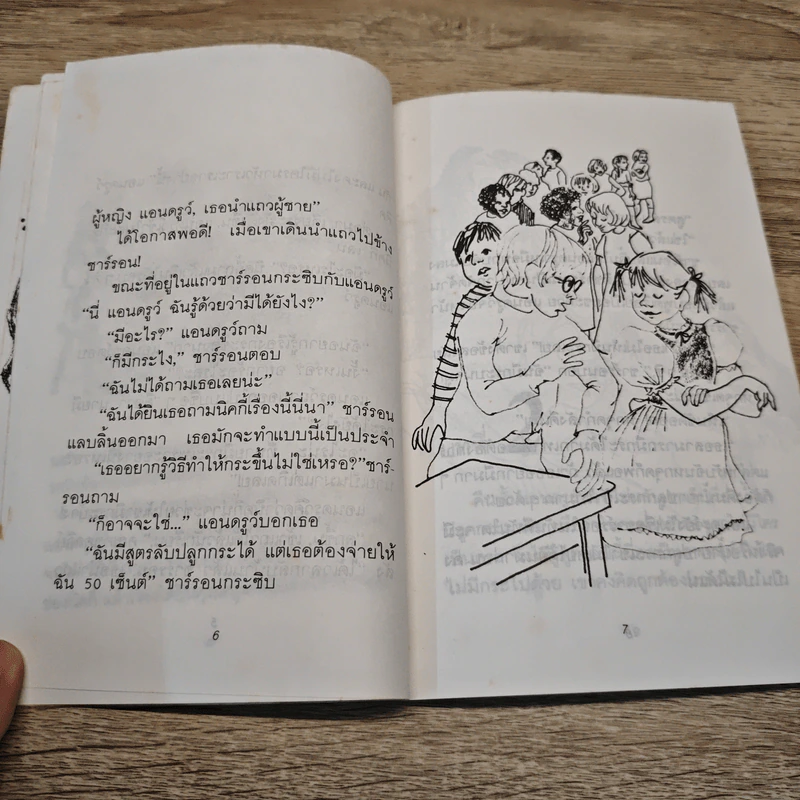 ผู้หญิง แอนดรูว์, เธอนำแถวผู้ชาย”
ได้โอกาสพอดี! เมื่อเขาเดินนำแถวไปข้าง
ชาร์รอน!
ขณะที่อยู่ในแถวชาร์รอนกระซิบกับแอนดรูว์
“นี่ แอนดรูว์ ฉันรู้ด้วยว่ามีได้ยังไง?”
“มีอะไร?” แอนดรูว์ถาม
“ก็มีกระไง,” ชาร์รอนตอบ
“ฉันไม่ได้ถามเธอเลยน่ะ”
“ฉันได้ยินเธอถามนิคกี้เรื่องนี้นี่นา” ชาร์รอน
แลบลิ้นออกมา เธอมักจะทำแบบนี้เป็นประจำ
“เธออยากรู้วิธีทำให้กระขึ้นไม่ใช่เหรอ?”ชาร์-
รอนถาม
“ก็อาจจะใช่...” แอนดรูว์บอกเธอ
“ฉันมีสูตรลับปลูกกระได้ แต่เธอต้องจ่ายให้
ฉัน 50 เซ็นต์” ชาร์รอนกระซิบ
6
7